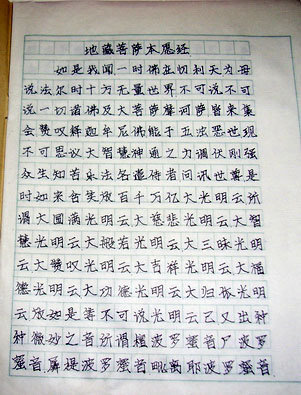 地藏菩萨本愿经
如是我闻一时佛在忉利天为母
说法尔时十方无量世界不可说不可
说一切诸佛及大菩萨摩诃萨皆来集
会赞叹释迦牟尼佛能于五浊恶世现
不可思议大智慧神通之力调伏刚强
众生知苦乐法各遣侍者问讯世尊是
时如来含笑放百千万亿大光明云所
谓大圆满光明云大慈悲光明云大智
慧光明云大般若光明云大三昧光明
云大赞叹光明云大吉祥光明云大福
德光明云大功德光明云大归依光明
云放如是等不可说光明云已又出种
种微妙之音所谓檀波罗蜜音尸波罗
蜜音羼提波罗蜜音毗离耶波罗蜜音